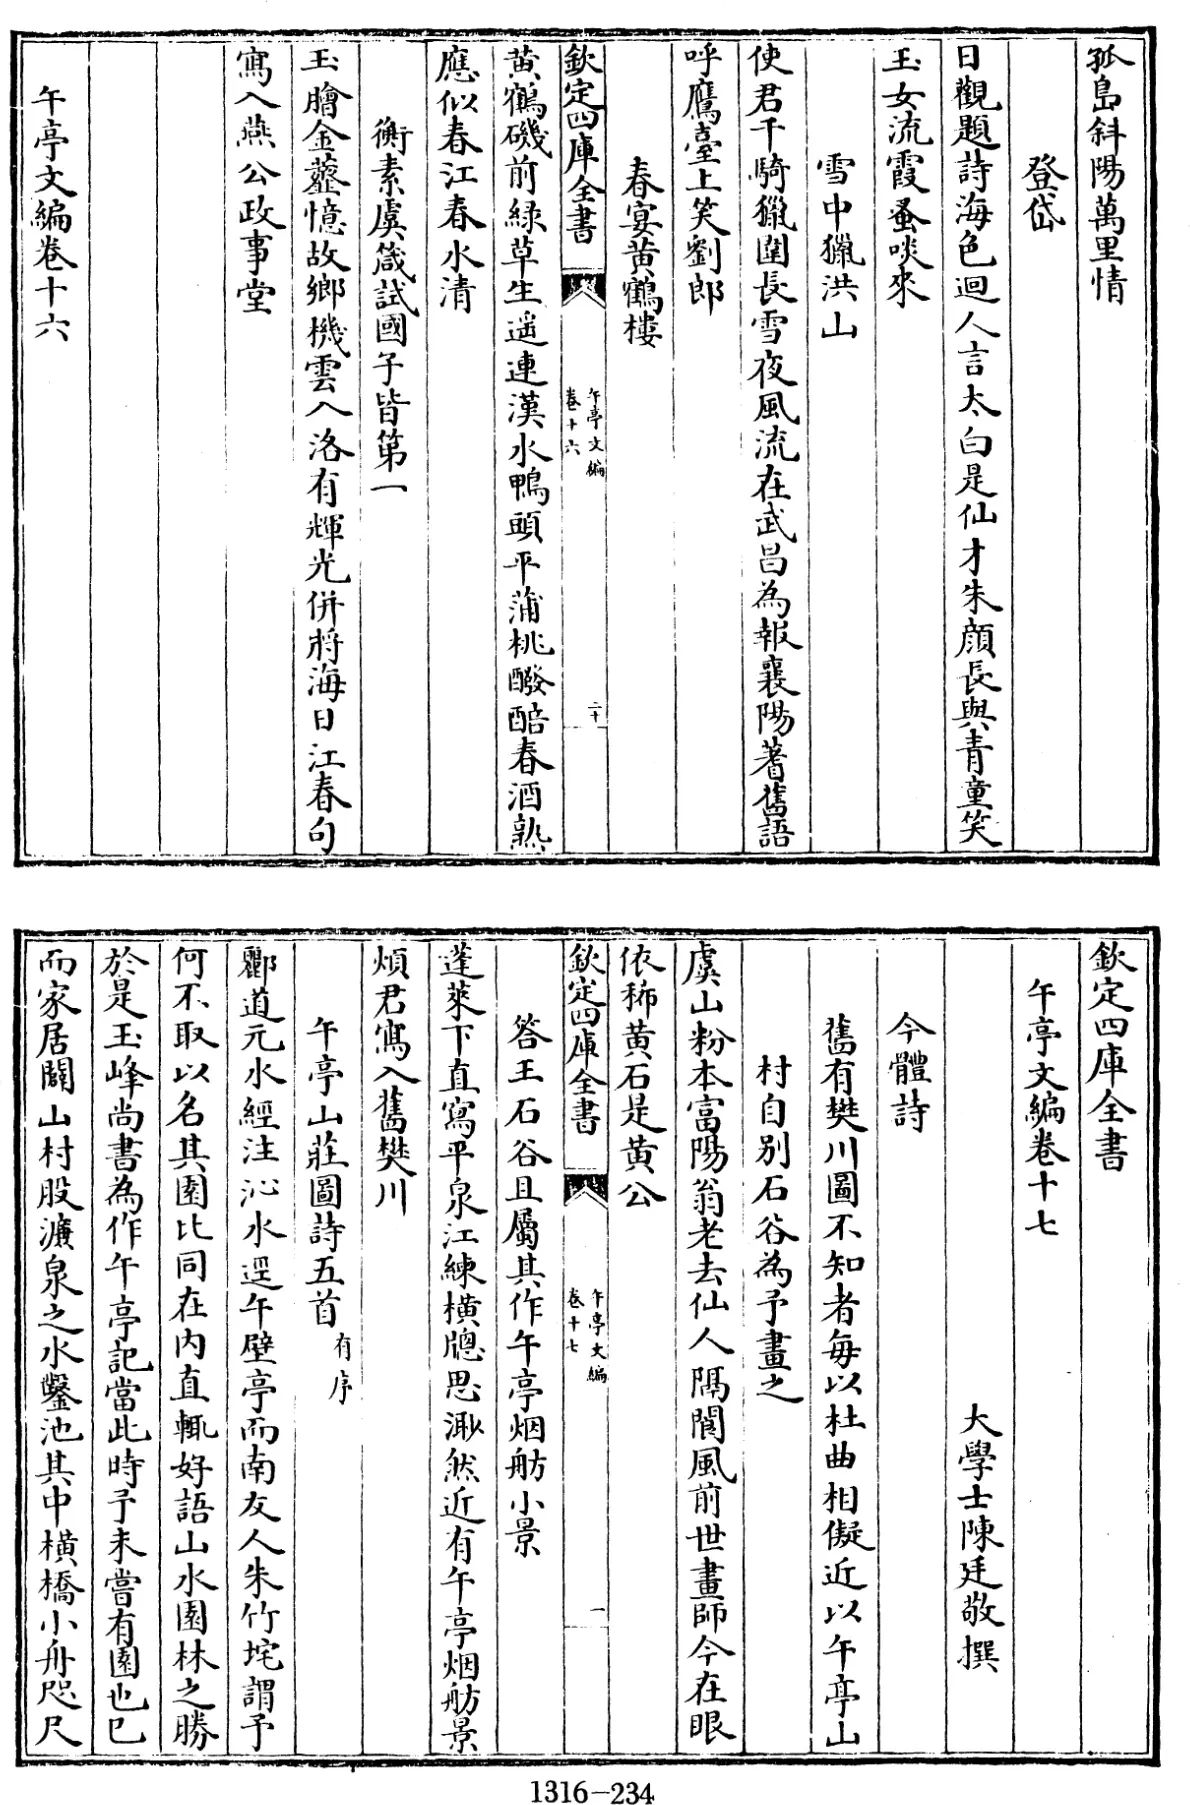 孤島斜陽萬里情
登岱
日觀題詩海色迴人言太白是仙才朱顔長與青童笑
玉女流霞蚤啖來
雪中獵洪山
使君千騎獵圍長雪夜風流在武昌為報襄陽耆舊語
呼鷹臺上笑劉郎
春宴黄鶴樓
欽定四庫全書
午亭文編
卷十六
二十
黄鶴磯前緑草生遥連漢水鴨頭平蒲桃醱醅春酒熟
應似春江春水清
衡素虞箴試國子皆第一
玉膾金虀憶故鄉機雲入洛有輝光併將海日江春句
寫入燕公政事堂
午亭文編卷十六
欽定四庫全書
午亭文編卷十七
大學士陳廷敬撰
今體詩
舊有樊川圖不知者每以杜曲相儗近以午亭山
村自别石谷為予畫之
虞山粉本富陽翁老去仙人隔閬風前世畫師今在眼
依稀黄石是黄公
欽定四庫全書
午亭文編
卷十七
一
答王石谷且屬其作午亭烟舫小景
蓬萊下直寫平泉江練横牕思渺然近有午亭烟舫景
煩君寫入舊樊川
午亭山莊圖詩五首有序
酈道元水經注沁水逕午壁亭而南友人朱竹垞謂予
何不取以名其園比同在内直輒好語山水園林之勝
於是玉峰尚書為作午亭記當此時予未嘗有園也已
而家居闢山村股濂泉之水鑿池其中横橋小舟咫尺
1316-234